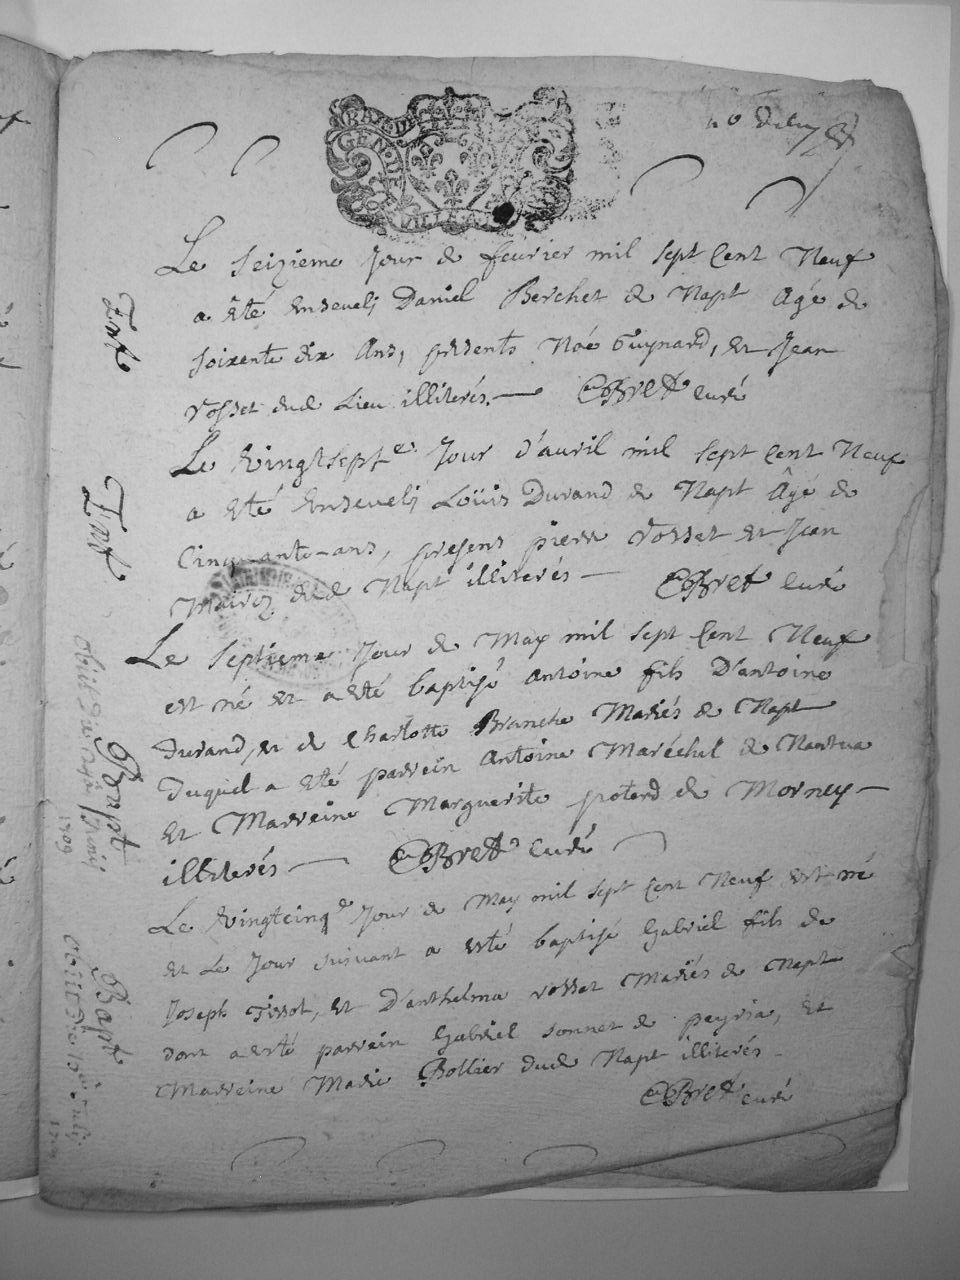 GEN DE
Le seizieme jour de feurier mil sept Cent Neuf
a Eté Enseueli Daniel Berchet de Napt Agé de
soixente dix Ans, presents Noé Guynard, et Jean
Vosset dud Lieu illiterés. CBret Curé
Le Vingtsept e Jour d'auril mil sept Cent Neuf
a Eté Enseueli Loüis Durand de Napt Âgé de
Cinquante-ans, presens pierre Vosset et Jean
dud Napt illiterés CBret Curé
Le Septieme Jour de May mil sept Cent Neuf
est né et a Eté baptisé Antoine fils D'antoine
Durand, et de Charlotte Branche Mariés de Napt
Duquel a Eté parrein Antoine Maréchel de Nantua
Et Marreine Marguerite poterd de Morney
illiterés CBret Curé
Le Vingtcinq e Jour de May mil sept Cent Neuf est né
et Le Jour suivant a esté baptisé Gabriel fils de
Joseph Tissot, et D'anthelma Vosset Mariés de Napt
dont a esté parrein Gabriel sonnet de peyria, et
Marreine Marie Bollier dud Napt illiterés
CBret curé
Ent
Ent
Bapt
obiit die
Junij
1709
Bapt
obiit Die
Julij